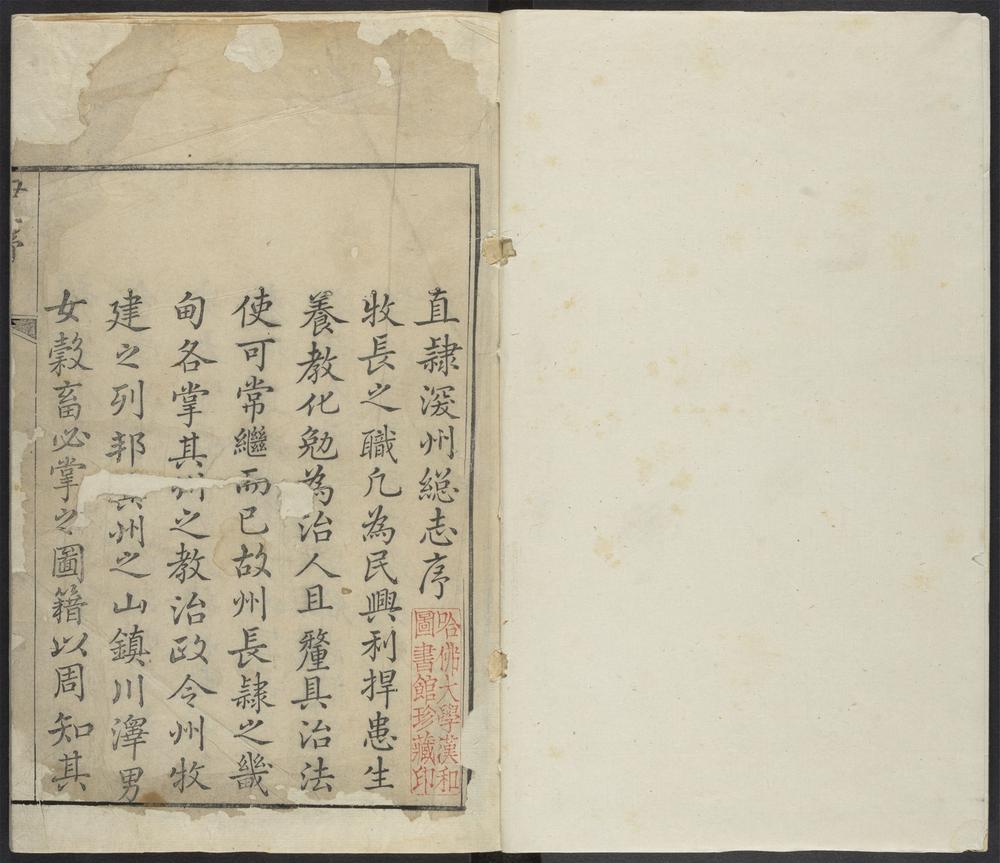 直隷深州緫志序
牧長之職凢為民興利捍患生
養教化勉為治人且釐具治法
使可常繼而已故州長隷之畿
甸各掌其州之教治政令州牧
建之列邦其州之山鎮川澤男
女榖畜必掌之圖籍以周知其
序
哈佛大學漢和
圖書館珍藏印